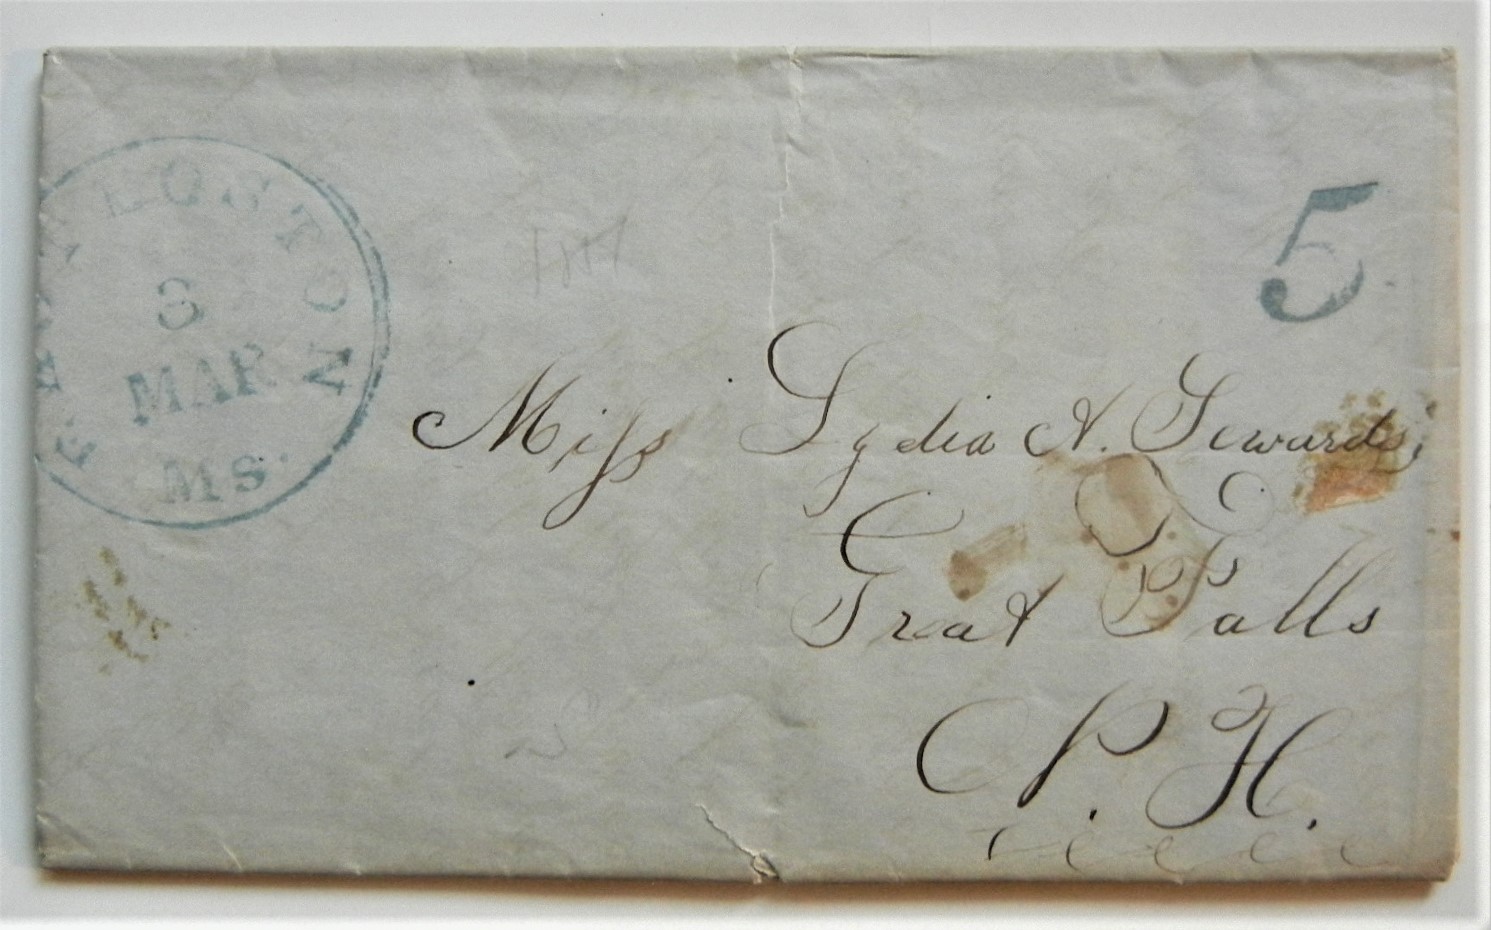 EAST BOSTON
3
MAR
Ms.
5
Miss Lydia A. Sewards,
Great Falls
N. H.